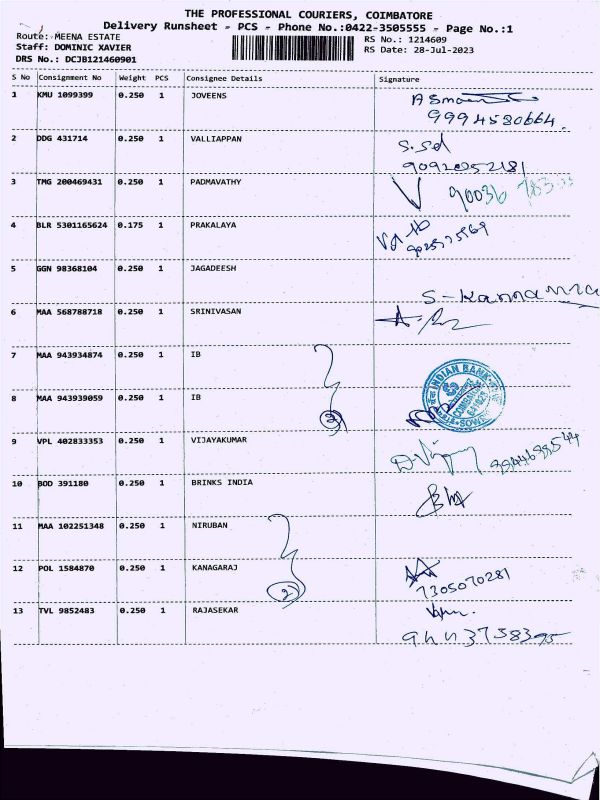 THE PROFESSIONAL COURIERS, COIMBATORE
Delivery Runsheet - PCS - Phone No.:0422-3505555 - Page No.:1
Route: MEENA ESTATE
RS No.: 1214609
Staff: DOMINIC XAVIER
RS Date: 28-Jul-2023
DRS No.: DCJB121460901
S No Consignment No Weight PCS Consignee Details Signature
1 KMU 1099399 0.250 1 JOVEENS
9994580664.
2 DDG 431714 0.250 1 VALLIAPPAN S.Sd
9092052181
3 TMG 200469431 0.250 1 PADMAVATHY
90036
4 BLR 5301165624 0.175 1 PRAKALAYA
5 GGN 98368104 0.250 1 JAGADEESH
6 MAA 568788718 0.250 1 SRINIVASAN
7 MAA 943934874 0.250 1 IB
8 MAA 943939059 0.250 1 IB
INDIAN BANK
9 VPL 402833353 0.250 1 VIJAYAKUMAR
10 BOD 391180 0.250 1 BRINKS INDIA
11 MAA 102251348 0.250 1 NIRUBAN
12 POL 1584870 0.250 1 KANAGARAJ
2
7305070281
13 TVL 9852483 0.250 1 RAJASEKAR